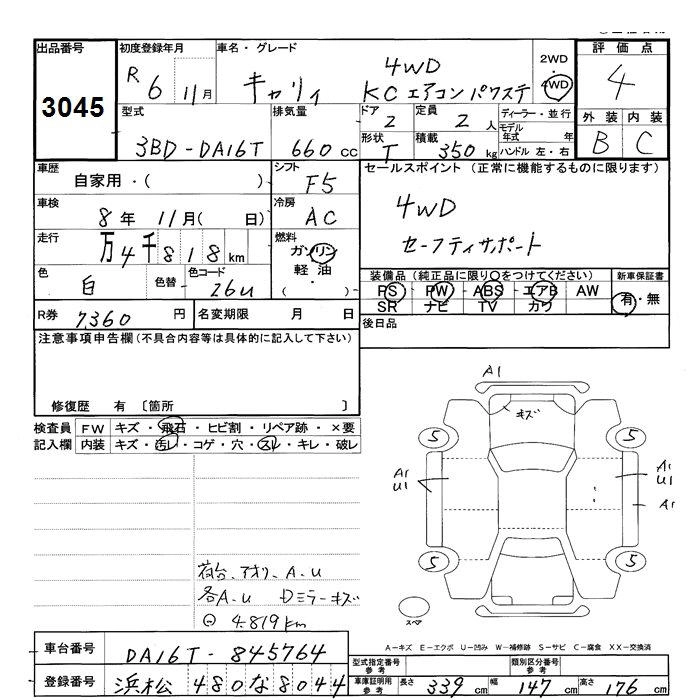 出品番号 初度登録年月 車名・グレード 評価点
3045
R 6 年 11月 キャリィ 4WD KC エアコン パワステ 2WD 4WD 4
型式 排気量 ドア 定員 ディーラー・並行 外装 内装
3BD-DA16T 660 cc 2 2 人 モデル年式 年 B C
形状 積載 ハンドル 左・右
T 350 kg
車歴 シフト セールスポイント (正常に機能するものに限ります)
自家用・( ) F5
車検 冷房 4WD
8年 11月( 日) AC セーフティサポート
走行 燃料
万4千818km ガソリン
軽油
( ・ )
色 色替 色コード 装備品 (純正品に限り○をつけてください) 新車保証書
白 26U PS PW ABS エアB AW 有・無
SR ナビ TV カワ
R券 7,360 円 名変期限 月 日 後日品
注意事項申告欄(不具合内容等は具体的に記入して下さい)
修復歴 有 〔箇所 〕
検査員 FW キズ・飛石・ヒビ割・リペア跡・×要
記入欄 内装 キズ・汚レ・コゲ・穴・スレ・キレ・破レ
A1
キズ
5 5
A1 U1 A1 U1
A1
5 5
スペア
荷台、アオリ、A.U
各A.U Dミラーキズ
⊙ 4.819km
A-キズ E-エクボ U-凹み W-補修跡 S-サビ C-腐食 XX-交換済
車台番号 DA16T-845764 型式指定番号 参考 類別区分番号 参考
登録番号 浜松 480 な 8044 車庫証明用 参考 長さ 339 cm 幅 147 cm 高さ 176 cm